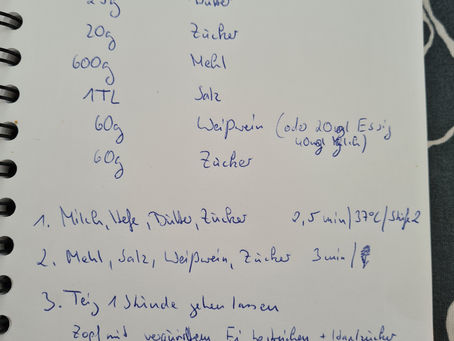 25g Butter
20g Zucker
600g Mehl
1TL Salz
60g Weißwein (oder 20ml Essig
40ml
60g Zucker
1. Milch, Hefe, Butter, Zucker 2,5 min/37°C/Stufe 2
2. Mehl, Salz, Weißwein, Zucker 3 min/
3. Teig 1 Stunde gehen lassen
Zopf mit verquirltem Ei bestreichen + Hagelzucker